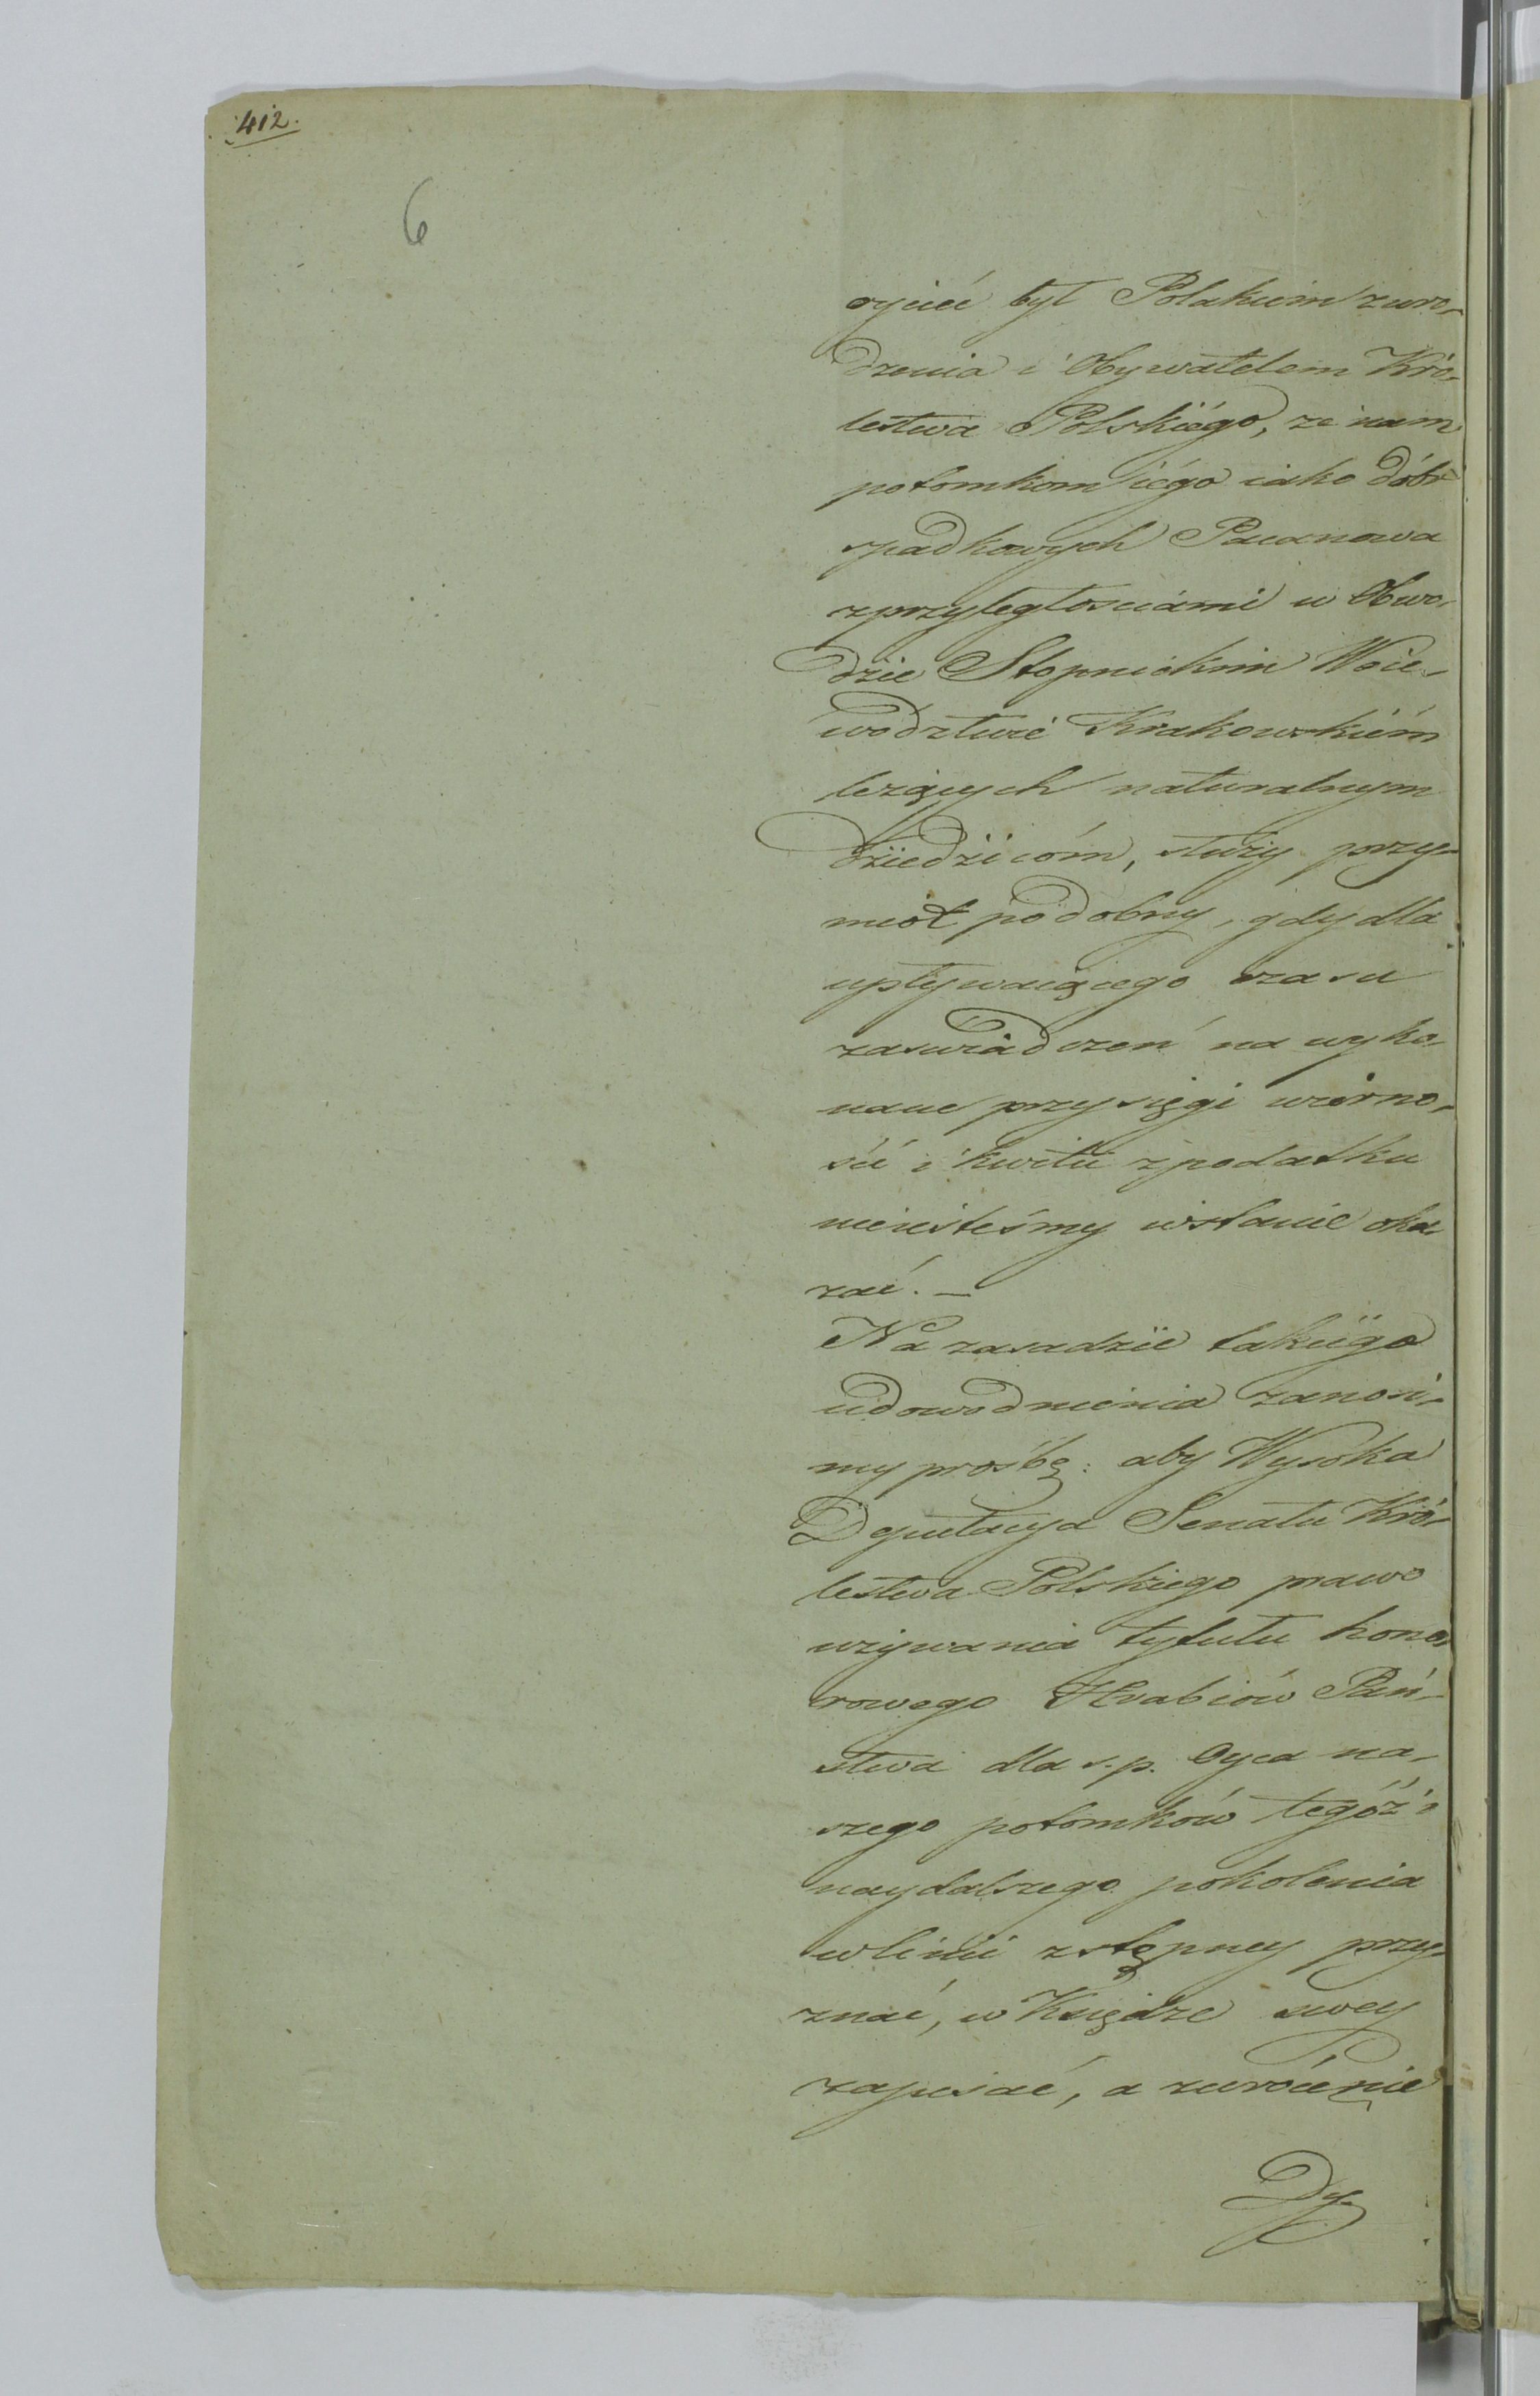 412.
6
oyciec był Polakiem z uro-
dzenia i Obywatelem Kró-
lestwa Polskiégo, ze nam
potomkom iégo iako dóbr
spadkowych Pacanowa
z przyległosciámi w Obwo-
dzie Stopnickim Woie-
wodztwie Krakowskiém
leżących naturalnym
dziedzicóm, służy przy-
miot podobny, gdy dla
upływaiącego czasu
zaswiadczeń na wyko-
nanie przysięgi wierno-
ści i kwitu z podatku
nieiesteśmy wstanie oka-
zać. —
Na zasadzie takiego
udowodnienia zanosi-
my prośbę: aby Wysoka
Deputacya Senatu Kró-
lestwa Polskiego prawo
używania tytułu hono-
rowego Hrabiów Pań-
stwa dla s. p. Oyca na-
szego potomków tegóż i
naydalszego pokolenia
w linii zstępney przy-
znać, w Księdze swey
zapisać, a zwrócenie
Dy-